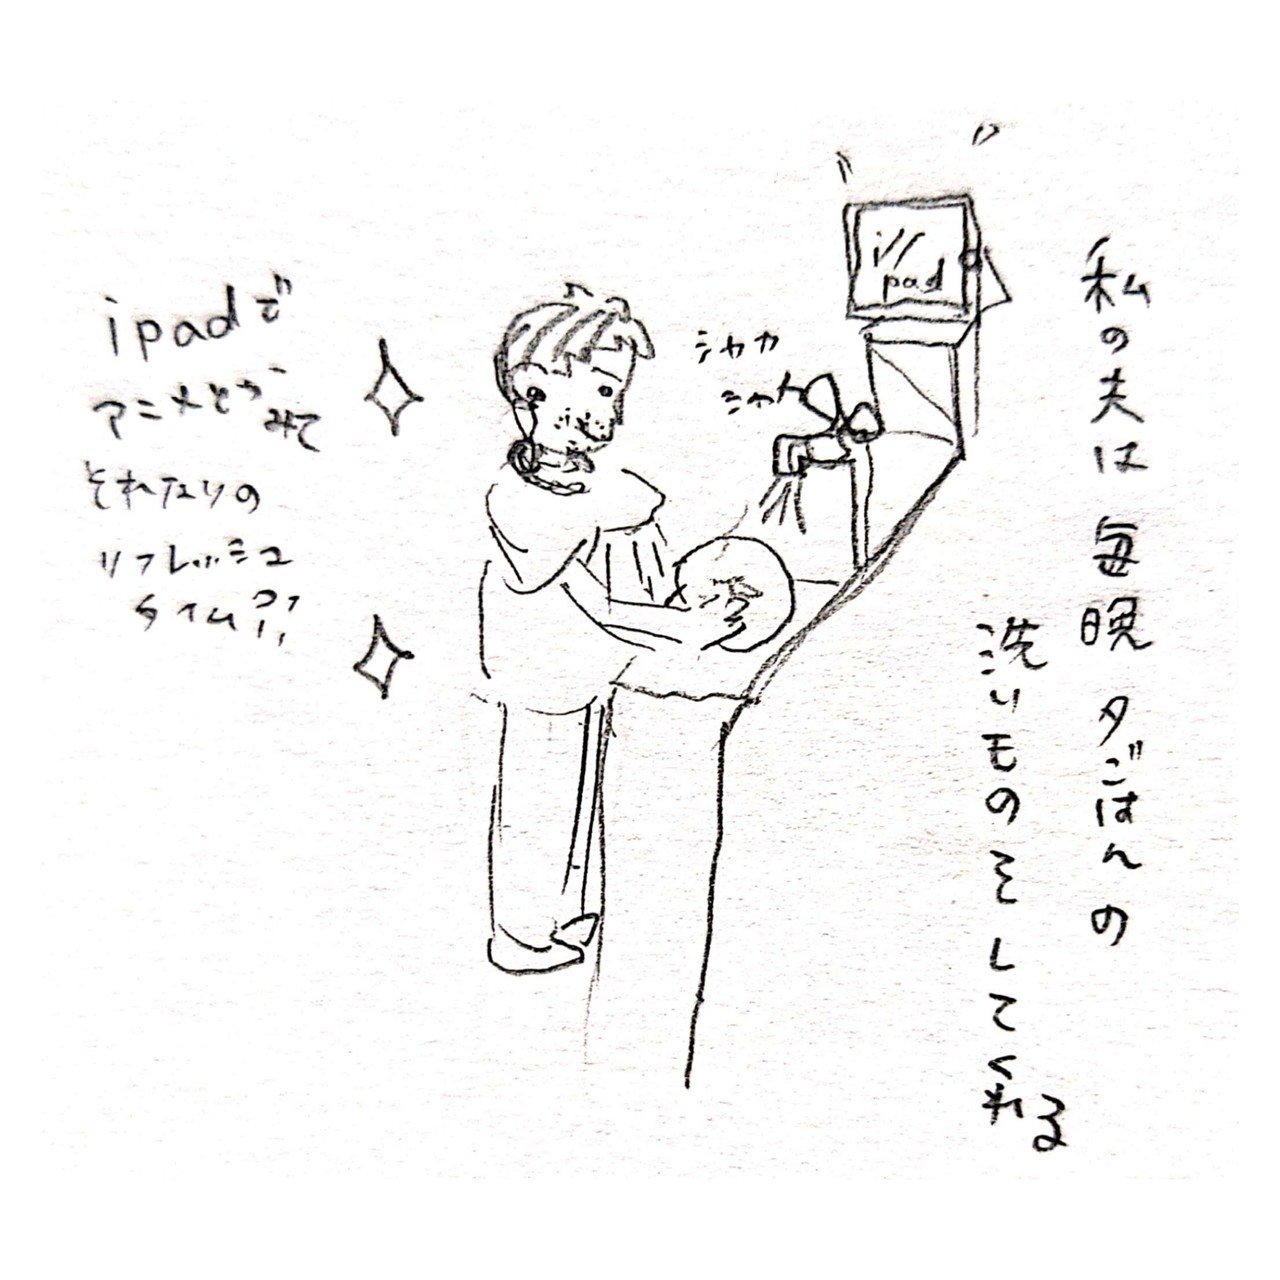 私の夫は毎晩夕ごはんの
洗いものをしてくれる
i
pad
シャカ
シャカ
ipadで
アニメとか
みて
それなりの
リフレッシュ
タイム?!